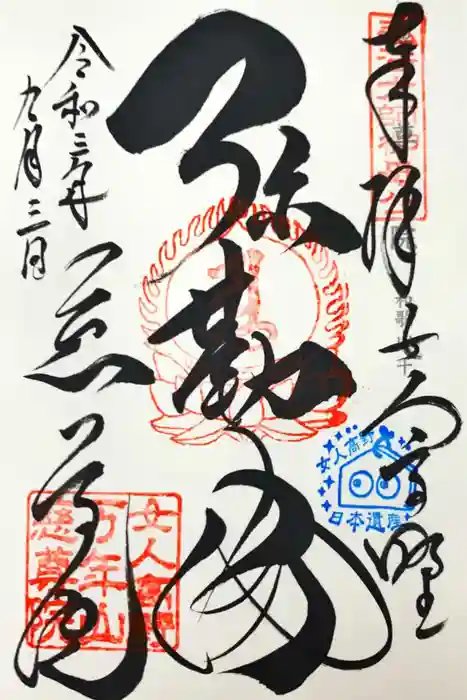 奉拝 女人高野
弥勒佛
慈尊院
令和三年
九月三日
女人高野
日本遺産
女人高野
万年山
慈尊院